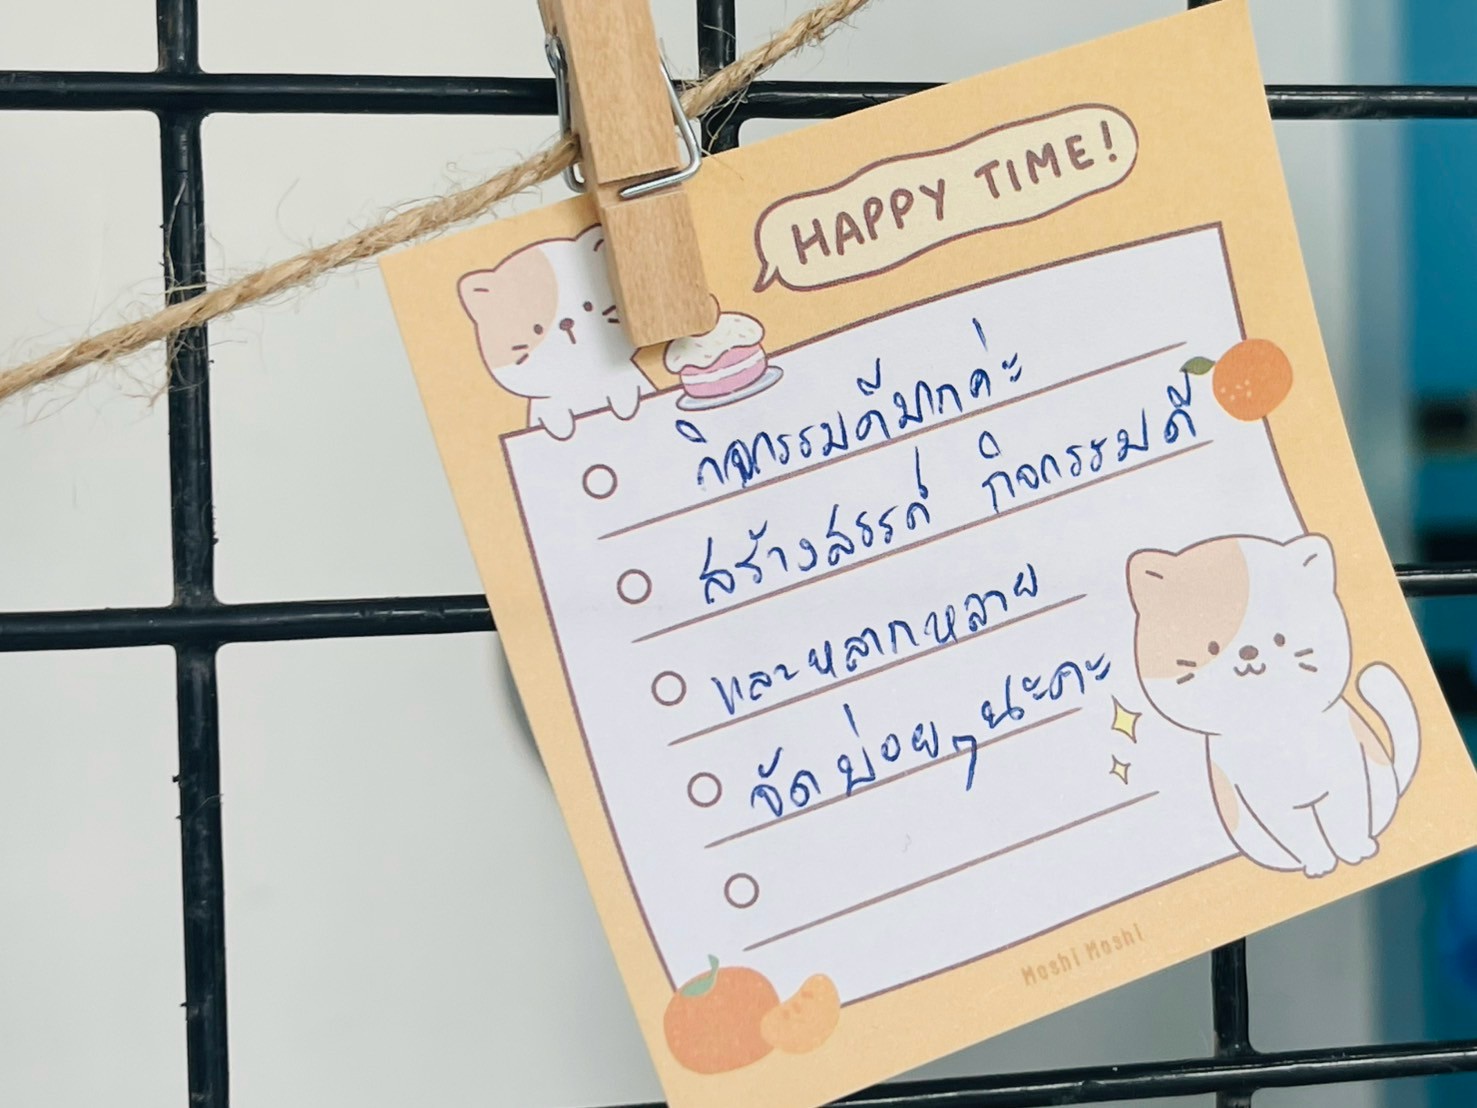 HAPPY TIME!
กิจกรรมดีมากค่ะ
สร้างสรรค์ กิจกรรมดี
และหลากหลาย
จัดบ่อยๆนะคะ
Moshi Moshi